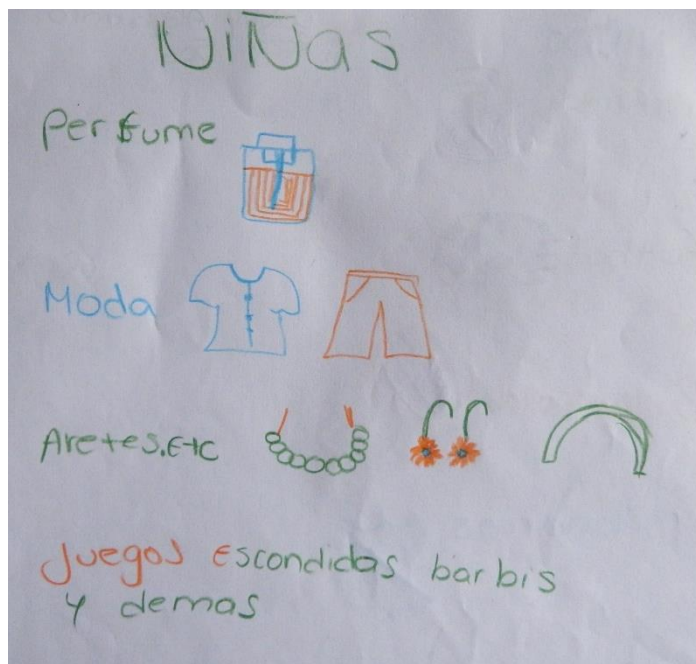 NiÑas
Perfume
Moda
Aretes.Etc
Juegos Escondidas barbis
y demas